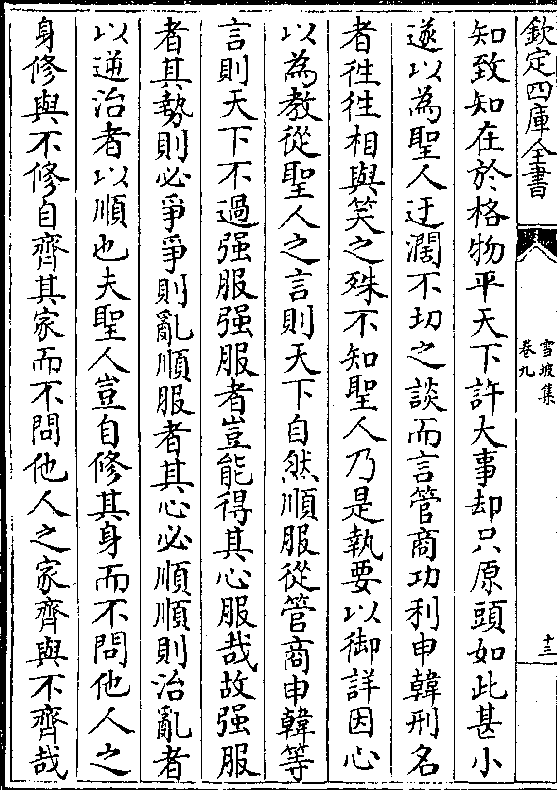 欽定四庫全書
雪坡集
卷九
十三
知致知在於格物平天下許大事却只原頭如此甚小
遂以為聖人迂濶不切之談而言管商功利申韓刑名
者徃徃相與笑之殊不知聖人乃是執要以御詳因心
以為教從聖人之言則天下自然順服從管商申韓等
言則天下不過强服强服者豈能得其心服哉故强服
者其勢則必爭爭則亂順服者其心必順順則治亂者
以逆治者以順也夫聖人豈自修其身而不問他人之
身修與不修自齊其家而不問他人之家齊與不齊哉